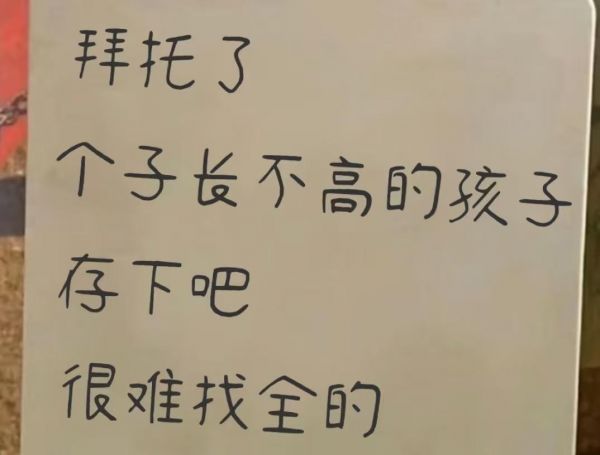 拜托了
个子长不高的孩子
存下吧
很难找全的